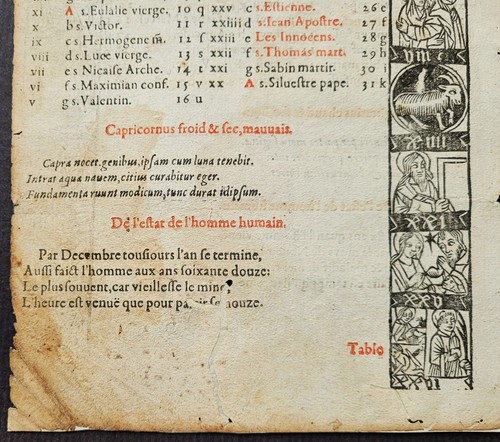 xi A s. Eulalie vierge. 10 q xxv c s. Estienne. 26 e
x b s. Victor. 11 r xxiiii d s. Iean Apostre. 27 f
ix c s. Hermogene m. 12 s xxiii e Les Innocens. 28 g
viii d s. Luce vierge. 13 s xxii f s. Thomas mart. 29 h
vii e s Nicaise Arche. 14 t xxi g s. Sabin martir. 30 i
vi f s. Maximian conf. 15 v xx A s. Siluestre pape. 31 k
v g s. Valentin. 16 u
Capricornus froid & sec, mauuais.
Capra nocet genibus, ipsam cum luna tenebit.
Intrat aqua nauem, citius curabitur eger.
Fundamenta ruunt modicum, tunc durat idipsum.
De l'estat de l'homme humain.
Par Decembre tousiours l'an se termine,
Aussi faict l'homme aux ans soixante douze:
Le plus souuent, car vieillesse le mine
L'heure est venuë que pour
VIII
XIII
XXI
XXV
XXVI